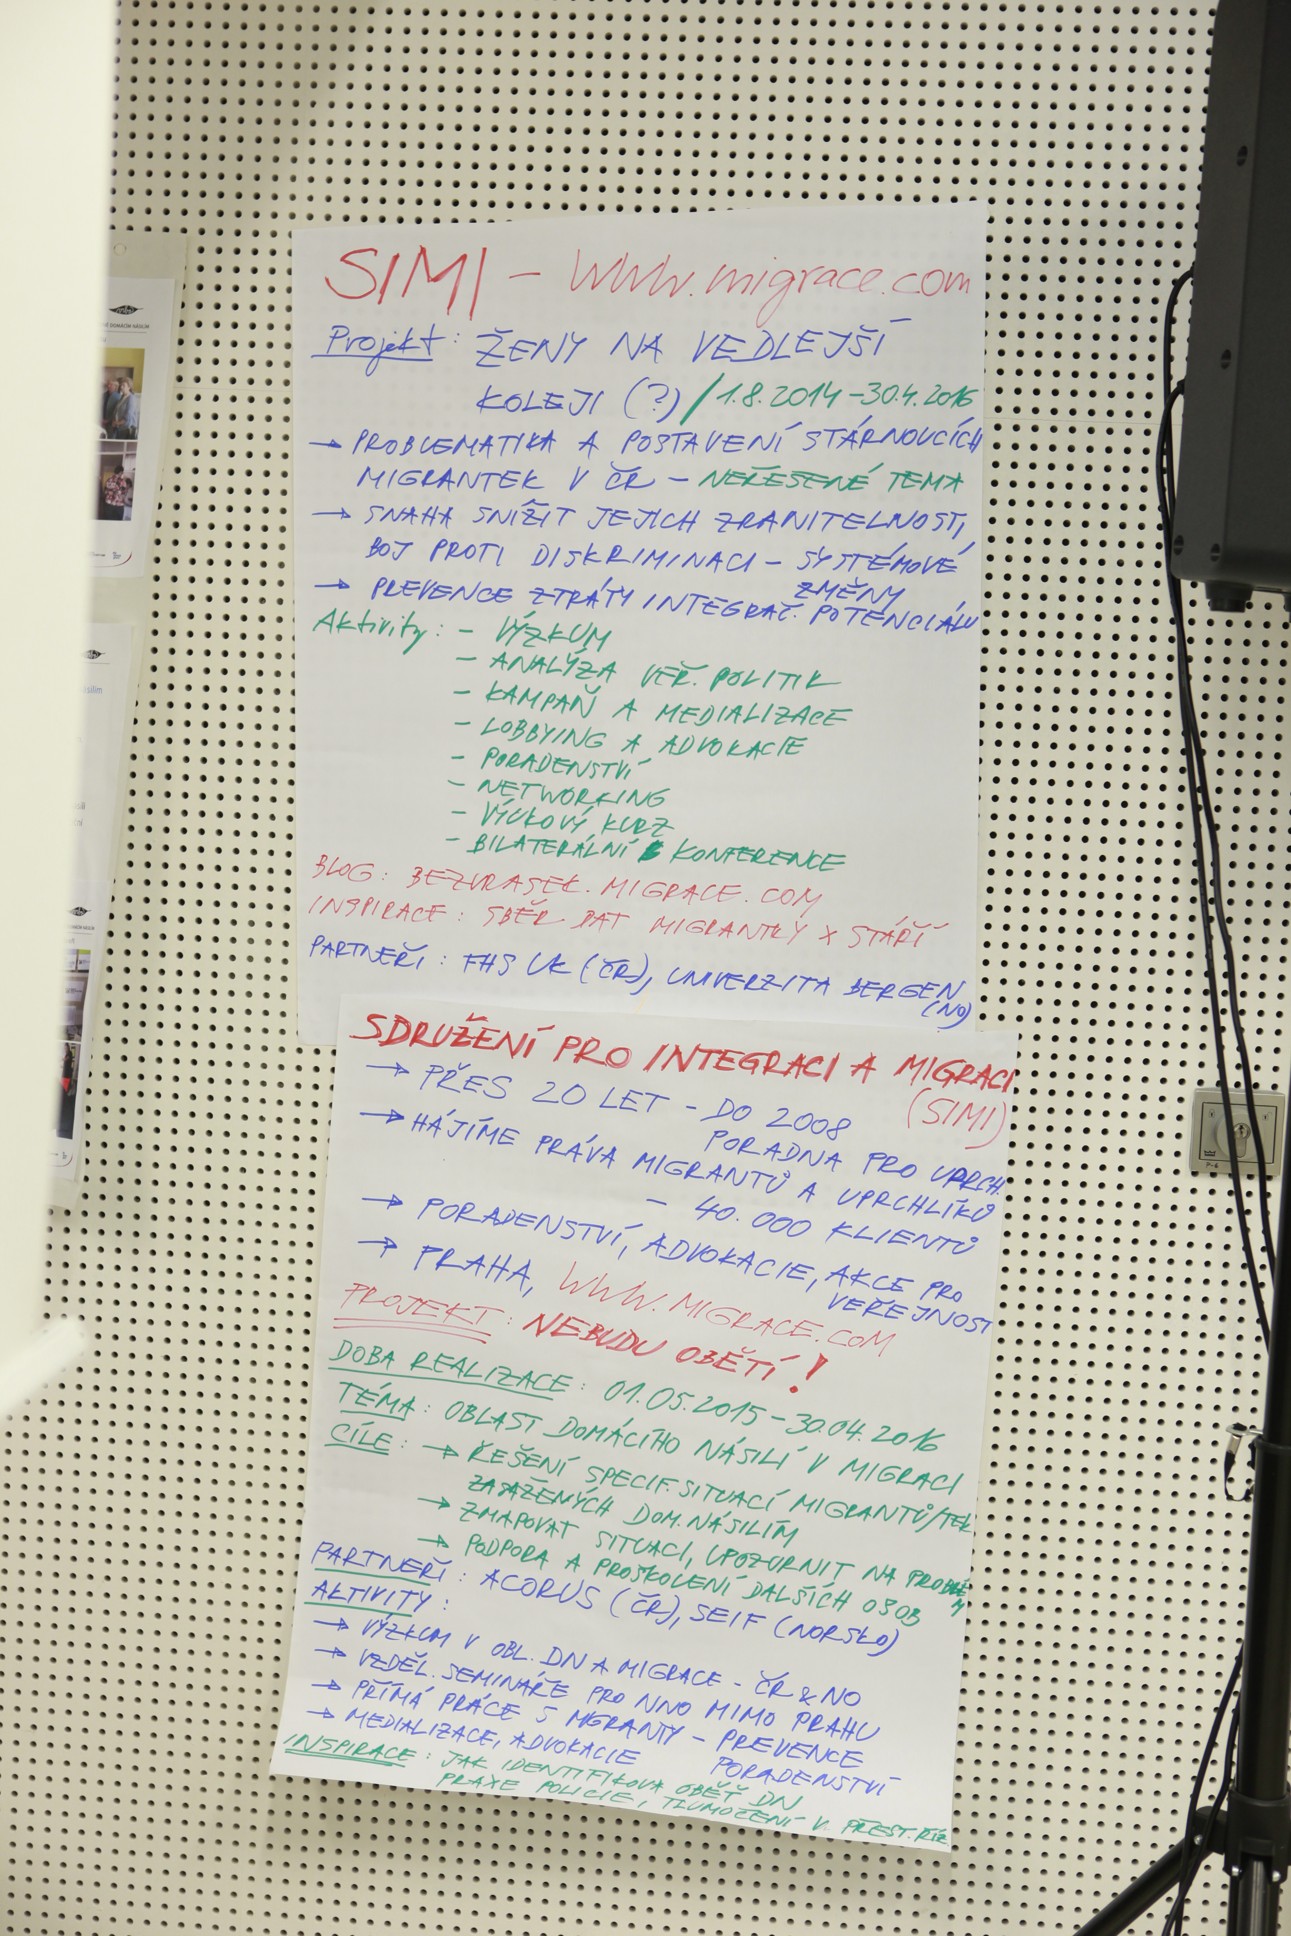 SIMI – www.migrace.com
Projekt: ŽENY NA VEDLEJŠÍ
KOLEJI (?) / 1.8.2014 – 30.4.2016
→ PROBLEMATIKA A POSTAVENÍ STÁRNOUCÍCH
MIGRANTEK V ČR – NEŘEŠENÉ TEMA
→ SNAHA SNÍŽIT JEJICH ZRANITELNOST,
BOJ PROTI DISKRIMINACI – SYSTÉMOVÉ
ZMĚNY
→ PREVENCE ZTRÁTY INTEGRAČ. POTENCIÁLU
Aktivity: – VÝZKUM
– ANALÝZA VEŘ. POLITIK
– KAMPAŇ A MEDIALIZACE
– LOBBYING A ADVOKACIE
– PORADENSTVÍ
– NETWORKING
– VÝUKOVÝ KURZ
– BILATERÁLNÍ KONFERENCE
BLOG: BEZVRASEK.MIGRACE.COM
INSPIRACE: SBĚR DAT MIGRANTKY X STÁŘÍ
PARTNEŘI: FHS UK (ČR), UNIVERZITA BERGEN
(NO)
SDRUŽENÍ PRO INTEGRACI A MIGRACI
(SIMI)
→ PŘES 20 LET – DO 2008
PORADNA PRO UPRCH.
→ HÁJÍME PRÁVA MIGRANTŮ A UPRCHLÍKŮ
– 40.000 KLIENTŮ
→ PORADENSTVÍ, ADVOKACIE, AKCE PRO
VEŘEJNOST
→ PRAHA, WWW.MIGRACE.COM
PROJEKT: NEBUDU OBĚTÍ!
DOBA REALIZACE: 01.05.2015 – 30.04.2016
TÉMA: OBLAST DOMÁCÍHO NÁSILÍ V MIGRACI
CÍLE: → ŘEŠENÍ SPECIF. SITUACÍ MIGRANTŮ/TEK
ZASAŽENÝCH DOM. NÁSILÍM
→ ZMAPOVAT SITUACI, UPOZORNIT NA PROBLÉMY
→ PODPORA A PROŠKOLENÍ DALŠÍCH OSOB
PARTNEŘI: ACORUS (ČR), SEIF (NORSKO)
AKTIVITY:
→ VÝZKUM V OBL. DN A MIGRACE – ČR & NO
→ VZDĚL. SEMINÁŘE PRO NNO MIMO PRAHU
→ PŘÍMÁ PRÁCE S MIGRANTY – PREVENCE
PORADENSTVÍ
→ MEDIALIZACE, ADVOKACIE
INSPIRACE: JAK IDENTIFIKOVA OBĚŤ DN
PRAXE POLICIE, TLUMOČENÍ V PŘEST. ŘÍZ.